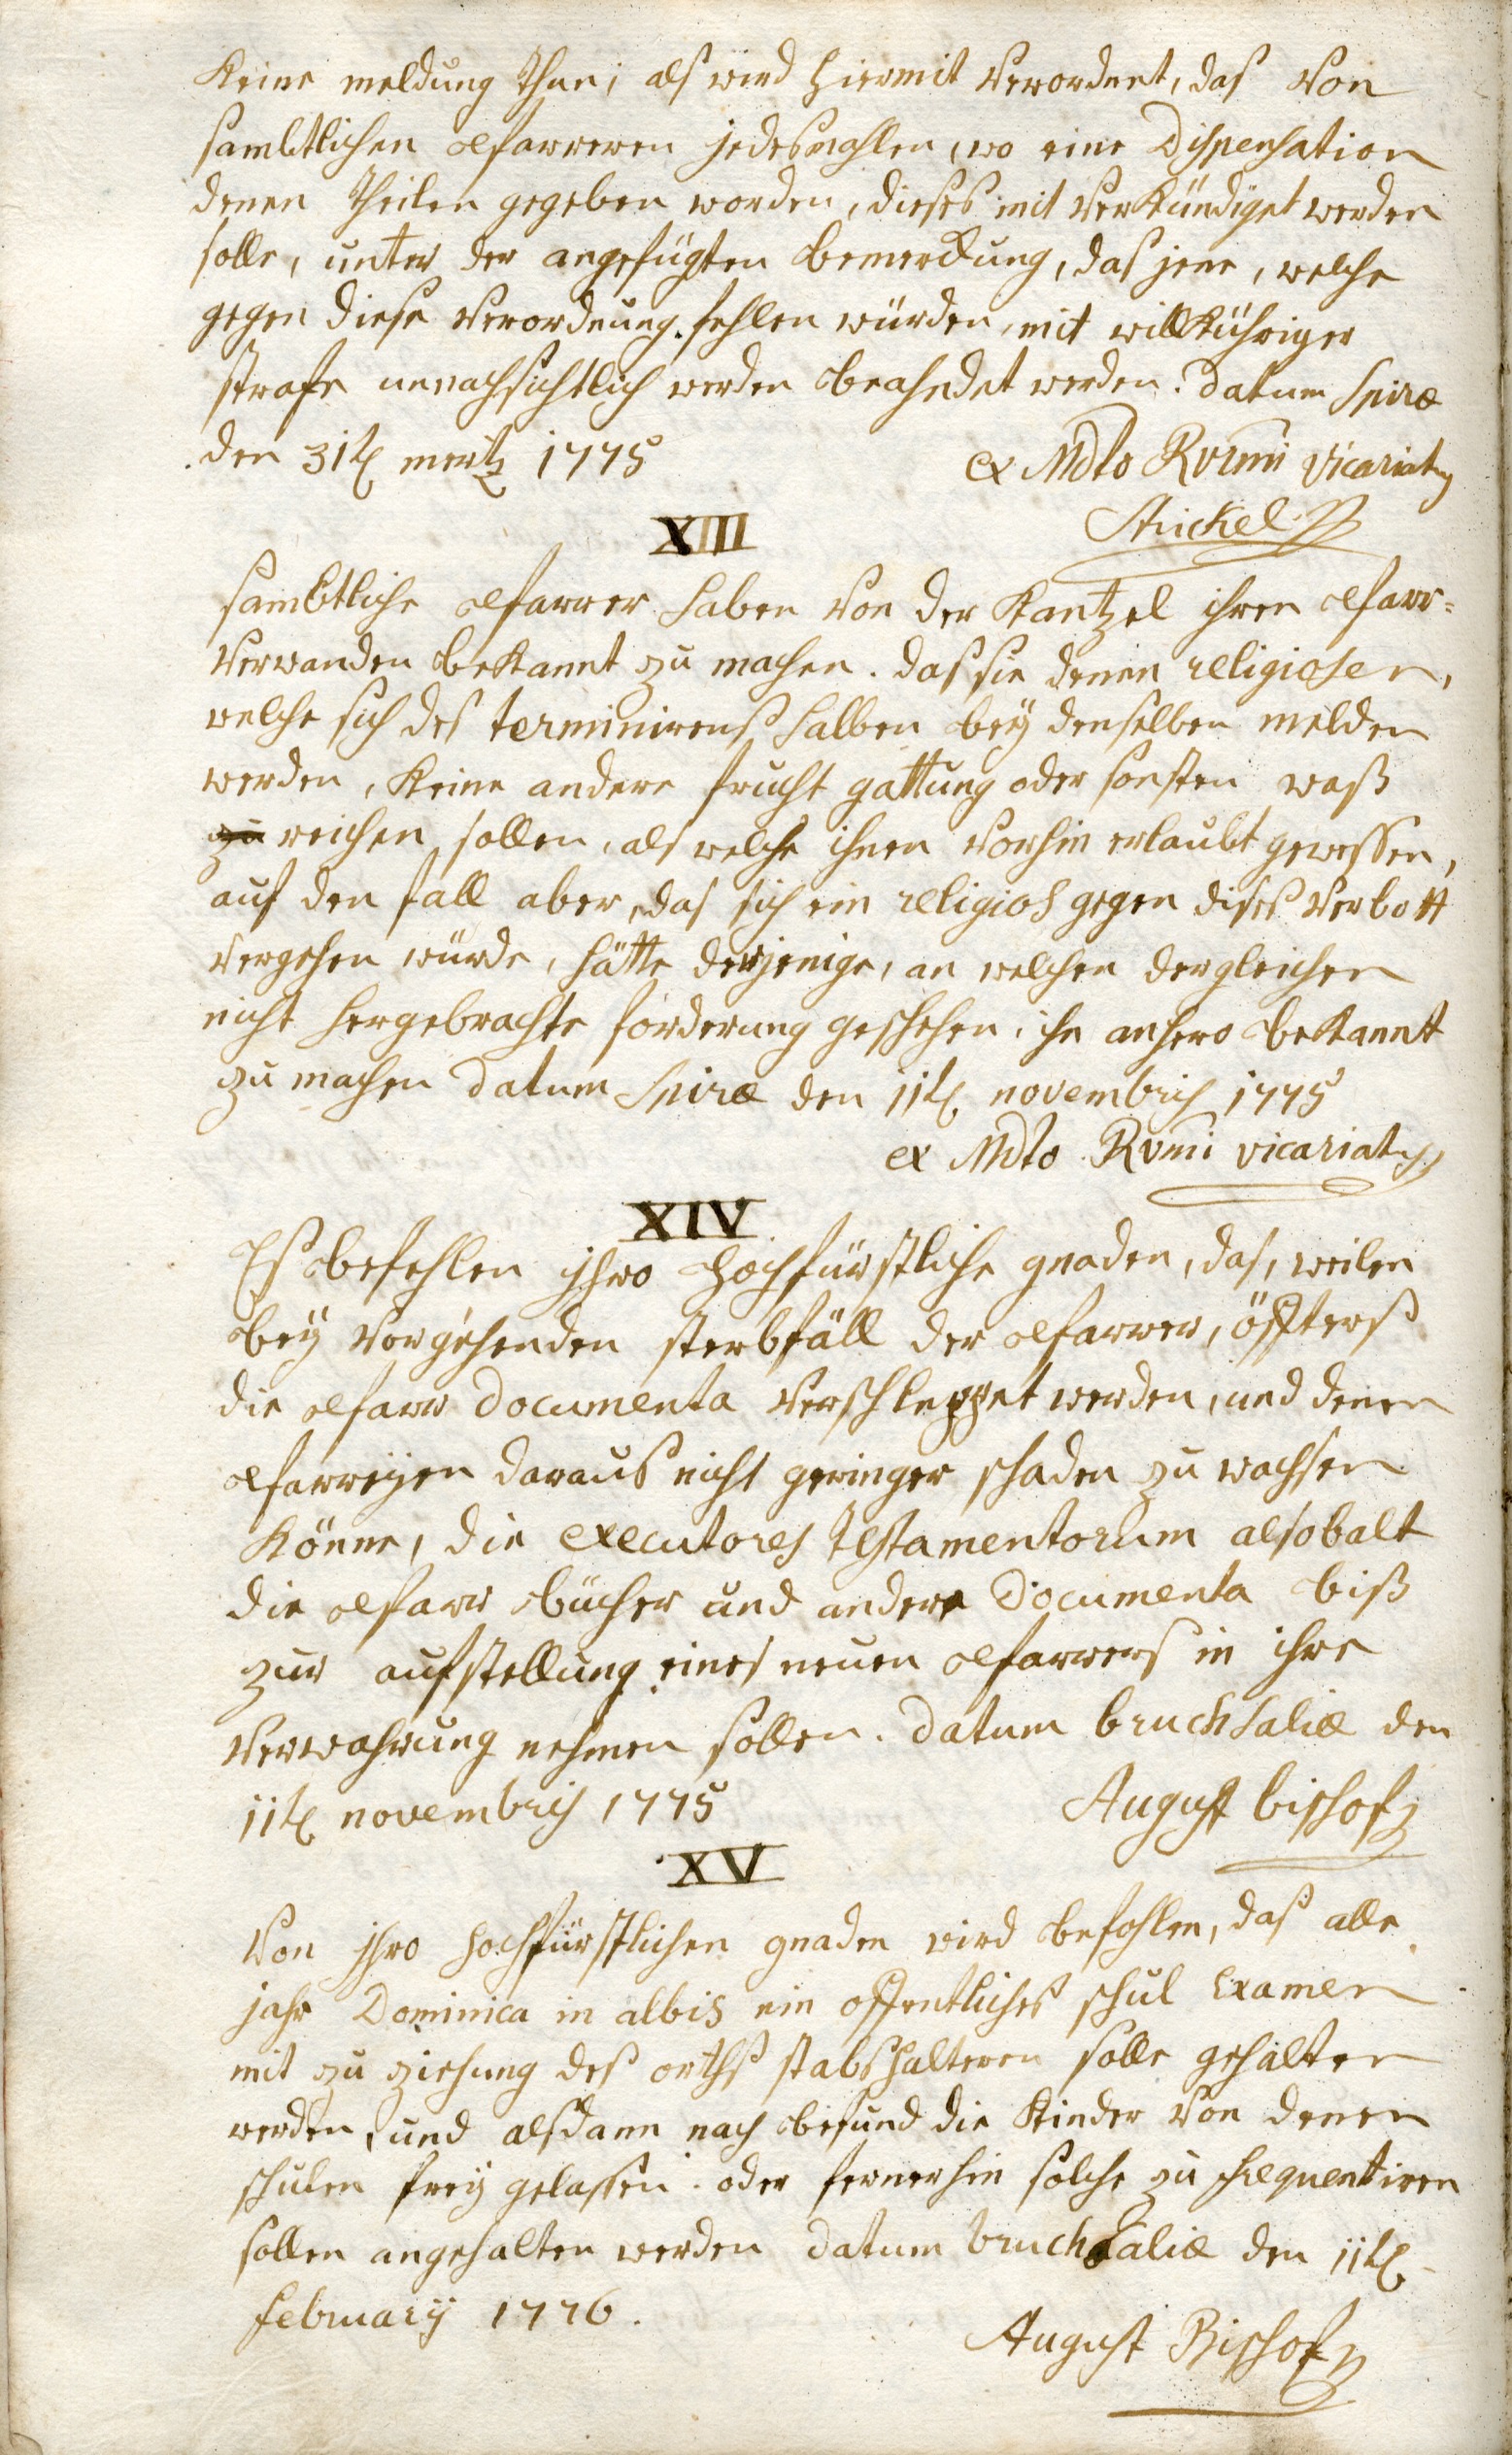 Keine meldung thun; als wird hiermit verordnet, das von
sambtlichen Pfarreren jedesmahlen, wo eine Dispensation
denen theilen gegeben worden, dieses mit verkündiget werden
solle, unter der angefügten bemerckung, das jene, welche
gegen diese verordnung fehlen würden, mit willkühriger
strafe unnachsichtlich werden beahndet werden. Datum Spiræ
den 31t mertz 1775 ex Mdto Rvmi vicariatus
Stickel
XIII
sambtliche Pfarrer haben von der Kantzel ihren Pfarr=
verwanden bekannt zu machen. das sie denen religiosen,
welche sich des terminirens halben bey denselben melden
werden, keine andere frucht gattung oder sonsten waß
zu reichen sollen, als welche ihnen vorhin erlaubt gewessen,
auf den fall aber, das sich ein religios gegen dises verbott
vergehen würde, hätte derjenige, an welchen dergleichen
nicht hergebrachte forderung geschehen, ihn anhero bekannt
zu machen Datum Spiræ den 11t novembris 1775
ex Mdto Rvmi vicariatus
XIV
Es befehlen ihro Hochfürstliche gnaden, das, weilen
bey vorgehenden sterbfäll der Pfarrer, öffters
die Pfarr Documenta verschleppet werden, und denen
Pfarreyen daraus nicht geringer schaden zu wachsen
könne, die executores testamentorum alsobalt
die Pfarr bücher und andere Documenta biß
zur aufstellung eines neuen Pfarrers in ihre
verwahrung nehmen sollen. Datum bruchsaliæ den
11t novembris 1775 August bischof
XV
Von ihro hochfürstlichen gnaden wird befohlen, daß alle
jahr Dominica in albis ein offentliches schul Examen
mit zu ziehung des orths stabshalteren solle gehalten
werden, und alsdann nach befund die Kinder von denen
schulen frey gelassen oder fernerhin solche zu frequentiren
sollen angehalten werden Datum bruchsaliæ den 11t
february 1776.
August Bischof